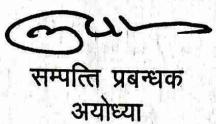 सम्पत्ति प्रबन्धक
अयोध्या